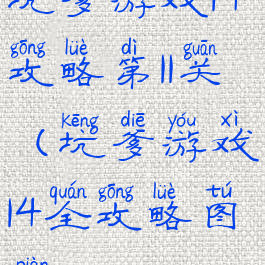 坑爹游戏14
gōng lüè dì guān
攻略第11关
kēng diē yóu xì
（坑爹游戏
quán gōng lüè tú
14全攻略图
piàn